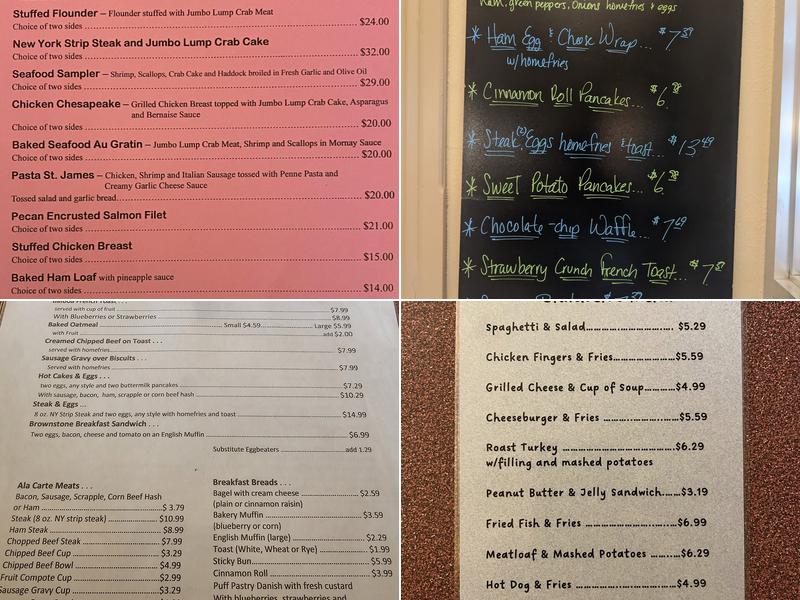 Stuffed Flounder – Flounder stuffed with Jumbo Lump Crab Meat
Choice of two sides ........ $24.00
New York Strip Steak and Jumbo Lump Crab Cake
Choice of two sides ........ $32.00
Seafood Sampler – Shrimp, Scallops, Crab Cake and Haddock broiled in Fresh Garlic and Olive Oil
Choice of two sides ........ $29.00
Chicken Chesapeake – Grilled Chicken Breast topped with Jumbo Lump Crab Cake, Asparagus
and Bernaise Sauce
Choice of two sides ........ $20.00
Baked Seafood Au Gratin – Jumbo Lump Crab Meat, Shrimp and Scallops in Mornay Sauce
Choice of two sides ........ $20.00
Pasta St. James – Chicken, Shrimp and Italian Sausage tossed with Penne Pasta and
Creamy Garlic Cheese Sauce
Tossed salad and garlic bread........ $20.00
Pecan Encrusted Salmon Filet
Choice of two sides ........ $21.00
Stuffed Chicken Breast
Choice of two sides ........ $15.00
Baked Ham Loaf with pineapple sauce
Choice of two sides ........ $14.00
Ham, green peppers, Onions homefries & eggs
* Ham Egg & Cheese Wrap...
w/homefries
* Cinnamon Roll Pancakes...
* Steak (2) Eggs homefries & toast... $13.49
* Sweet Potato Pancakes...
* Chocolate-chip Waffle... $7.69
* Strawberry Crunch French Toast...
French Toast . . .
served with cup of fruit ........ $7.99
With Blueberries or Strawberries ........ $8.99
Baked Oatmeal ........ Small $4.59 ........ Large $5.99
with Fruit ........ add $2.00
Creamed Chipped Beef on Toast . . .
served with homefries ........ $7.99
Sausage Gravy over Biscuits . . .
Served with homefries ........ $7.99
Hot Cakes & Eggs . . .
two eggs, any style and two buttermilk pancakes ........ $7.29
With sausage, bacon, ham, scrapple or corn beef hash ........ $10.29
Steak & Eggs ...
8 oz. NY Strip Steak and two eggs, any style with homefries and toast ........ $14.99
Brownstone Breakfast Sandwich . . .
Two eggs, bacon, cheese and tomato on an English Muffin ........ $6.99
Substitute Eggbeaters ........ add 1.29
Ala Carte Meats . . .
Bacon, Sausage, Scrapple, Corn Beef Hash
or Ham ........ $ 3.79
Steak (8 oz. NY strip steak) ........ $10.99
Ham Steak ........ $8.99
Chopped Beef Steak ........ $7.99
Chipped Beef Cup ........ $3.29
Chipped Beef Bowl ........ $4.99
Fruit Compote Cup ........ $2.99
Sausage Gravy Cup ........ $3.29
Breakfast Breads . . .
Bagel with cream cheese ........ $2.59
(plain or cinnamon raisin)
Bakery Muffin ........ $3.59
(blueberry or corn)
English Muffin (large) ........ $2.29
Toast (White, Wheat or Rye) ........ $1.99
Sticky Bun........ $5.99
Cinnamon Roll ........ $3.99
Puff Pastry Danish with fresh custard
With blueberries, strawberries and
Spaghetti & Salad........ $5.29
Chicken Fingers & Fries........$5.59
Grilled Cheese & Cup of Soup........$4.99
Cheeseburger & Fries ........$5.59
Roast Turkey ........$6.29
w/filling and mashed potatoes
Peanut Butter & Jelly Sandwich......$3.19
Fried Fish & Fries ........$6.99
Meatloaf & Mashed Potatoes ........$6.29
Hot Dog & Fries ........$4.99